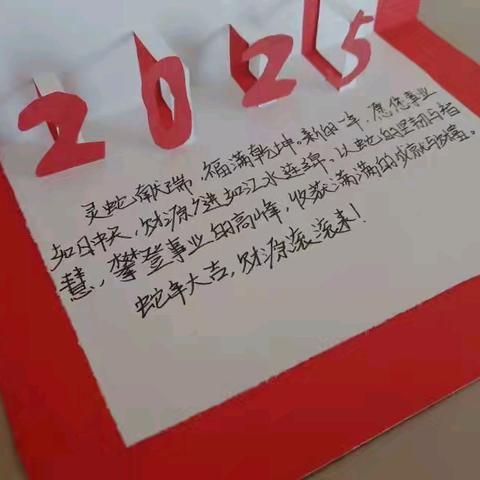 2025
灵蛇献瑞，福满乾坤。新的一年，愿您事业
如日中天，财源广进如江水连绵，以蛇的坚韧与智
慧，攀登事业的高峰，收获满满的成就与财富。
蛇年大吉，财源滚滚来！